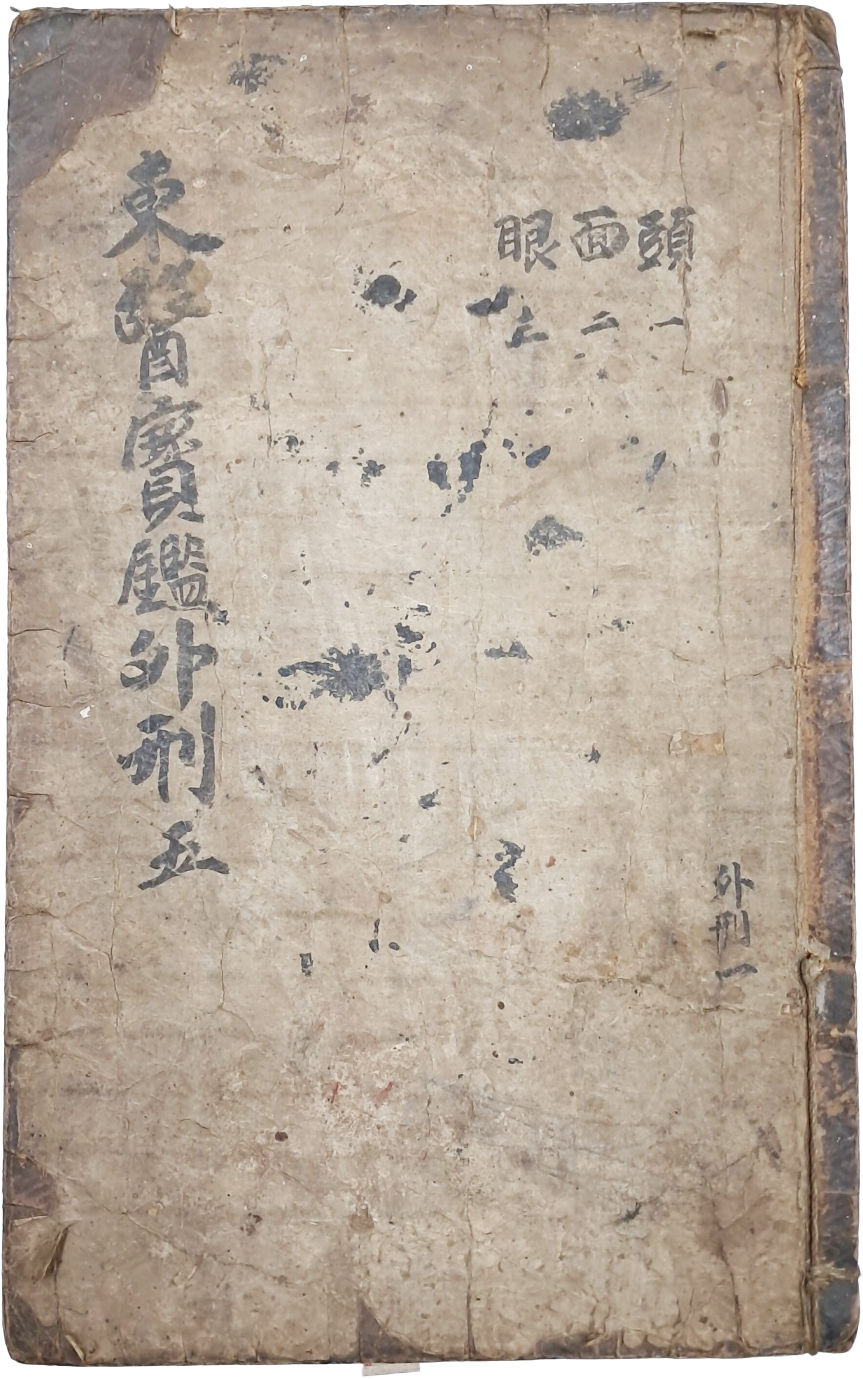 外刑一
頭 一
面 二
眼 三
東醫寶鑑外刑五